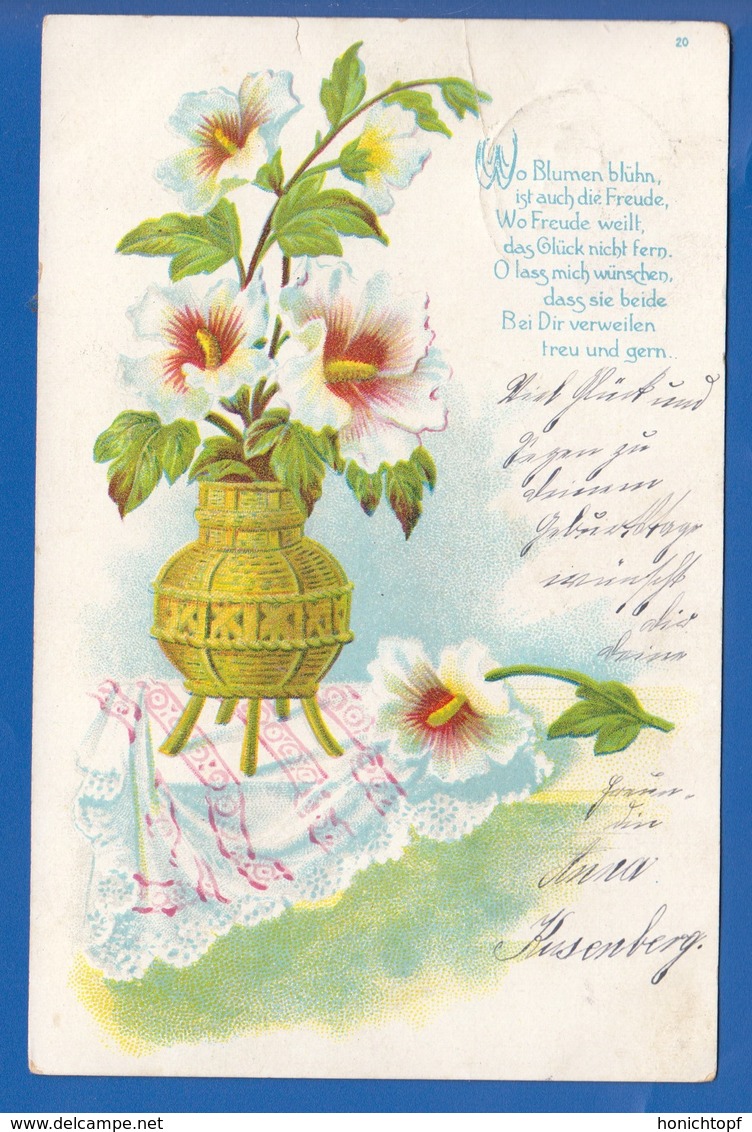 20
Wo Blumen blühn,
ist auch die Freude,
Wo Freude weilt,
das Glück nicht fern.
O lass mich wünschen,
dass sie beide
Bei Dir verweilen
treu und gern..
Viel Glück und
Segen zu
deinem
Geburtstage
wünscht
dir
deine
Freun-
din
Anna
Kusenberg.
delcampe.net
honichtopf